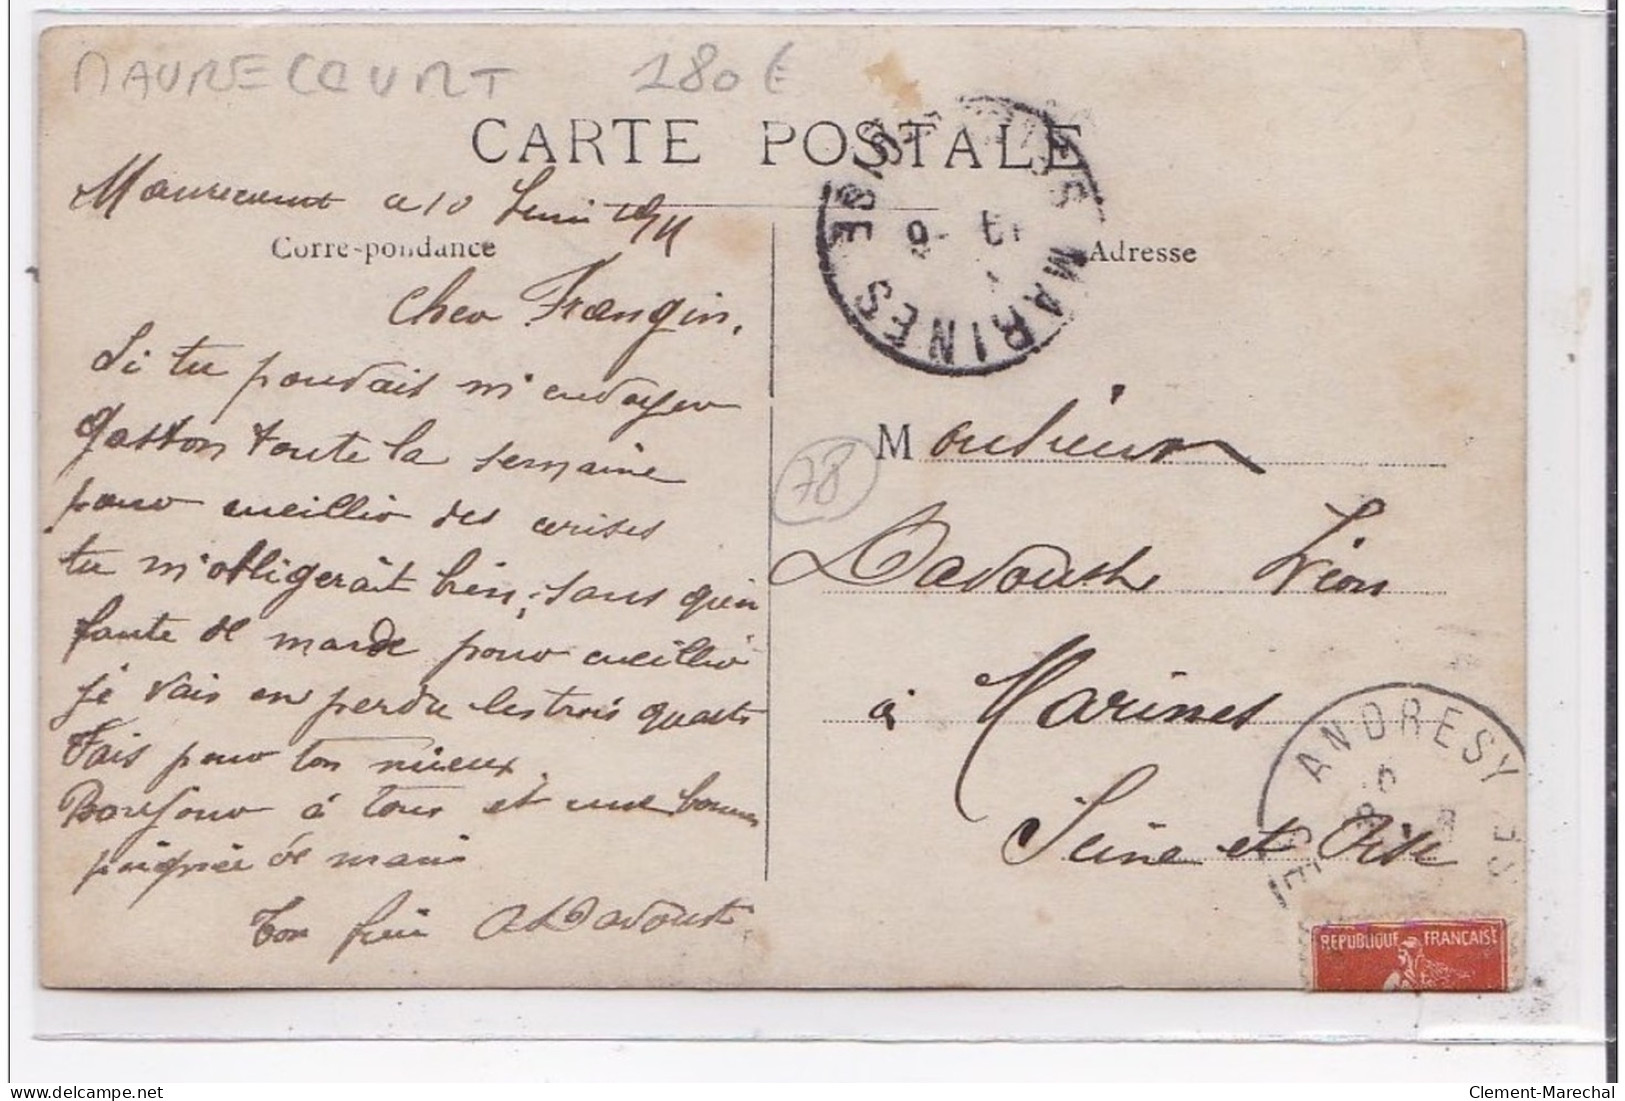 MAURECOURT 180€
CARTE POSTALE
Maurecourt le 10 Juin 1911
Correspondance
Adresse
Cher Frangin,
Si tu pouvais m'envoyer
Gaston toute la semaine
pour cueillir des cerises
tu m'obligerait bien, sans qu'en
faute de monde pour cueillir
je vais en perdre les trois quarts
Fais pour ton mieux.
Bonjour à tous et une bonne
poignée de main
Ton frère A Davoust
MARINES
78
Monsieur
Davoust Léon
à Marines
Seine et Oise
ANDRESY
REPUBLIQUE FRANÇAISE
Clement-Marechal